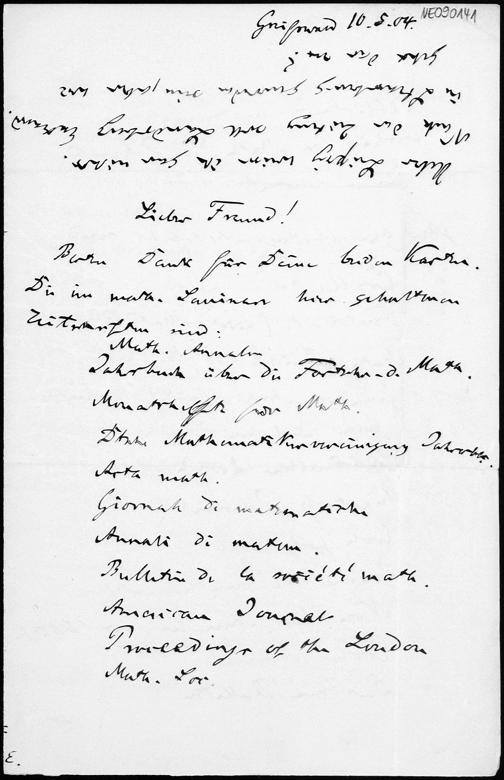 NE090141
Greifswald 10.5.04.
Ueber Leipzig weiss ich gar nichts.
Nach der Zeitung soll Landsberg
in Strassburg
geht der
Lieber Freund!
Besten Dank für Deine beiden Karten.
Die im math. Seminar hier gehaltenen
Zeitschriften sind:
Math. Annalen
Jahrbuch über die Fortschr. d. Math.
Monatshefte für Math.
Dtsche Mathematikervereinigung Jahresber.
Acta math.
Giornale di matematiche
Annali di matem.
Bulletin de la société math.
American Journal
Proceedings of the London
Math. Soc.
E.